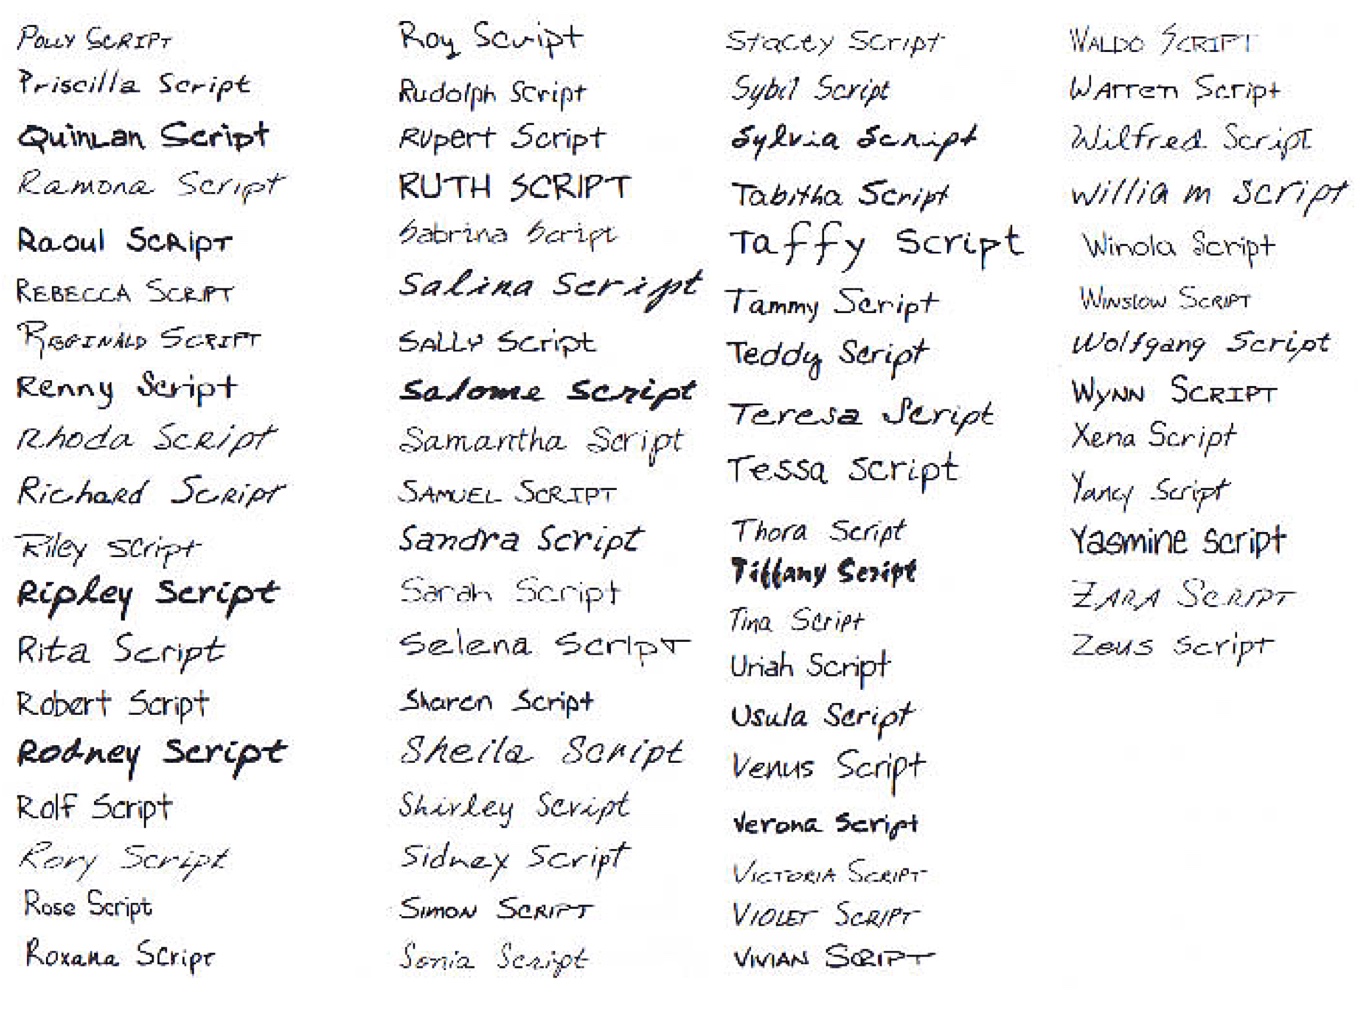 POLLY SCRIPT
Priscilla Script
QuinLan Script
Ramona Script
Raoul SCRIPT
REBECCA SCRIPT
REGINALD SCRIPT
Renny Script
Rhoda SCRIPT
Richard SCRIPT
Riley SCript
Ripley Script
Rita Script
Robert Script
Rodney Script
Rolf Script
Rory Script
Rose Script
Roxana SCript
Roy Script
Rudolph Script
Rupert Script
RUTH SCRIPT
Sabrina Script
Salina Script
SALLY SCript
Salome Script
Samantha Script
SAMUEL SCRIPT
Sandra Script
Sarah Script
Selena Script
Sharon Script
Sheila Script
Shirley Script
Sidney Script
SIMON SCRIPT
Sonia Script
Stacey Script
Sybil Script
Sylvia Script
Tabitha Script
Taffy Script
Tammy Script
Teddy Script
Teresa Script
Tessa Script
Thora Script
Tiffany Script
Tina Script
Uriah Script
Usula Script
Venus Script
Verona Script
VICTORIA SCRIPT
VIOLET SCRIPT
VIVIAN SCRIPT
WALDO SCRIPT
WArren Script
Wilfred Script
William Script
Winola Script
WINSLOW SCRIPT
Wolfgang Script
WYNN SCRIPT
Xena Script
Yancy Script
Yasmine Script
ZARA SCRIPT
Zeus Script